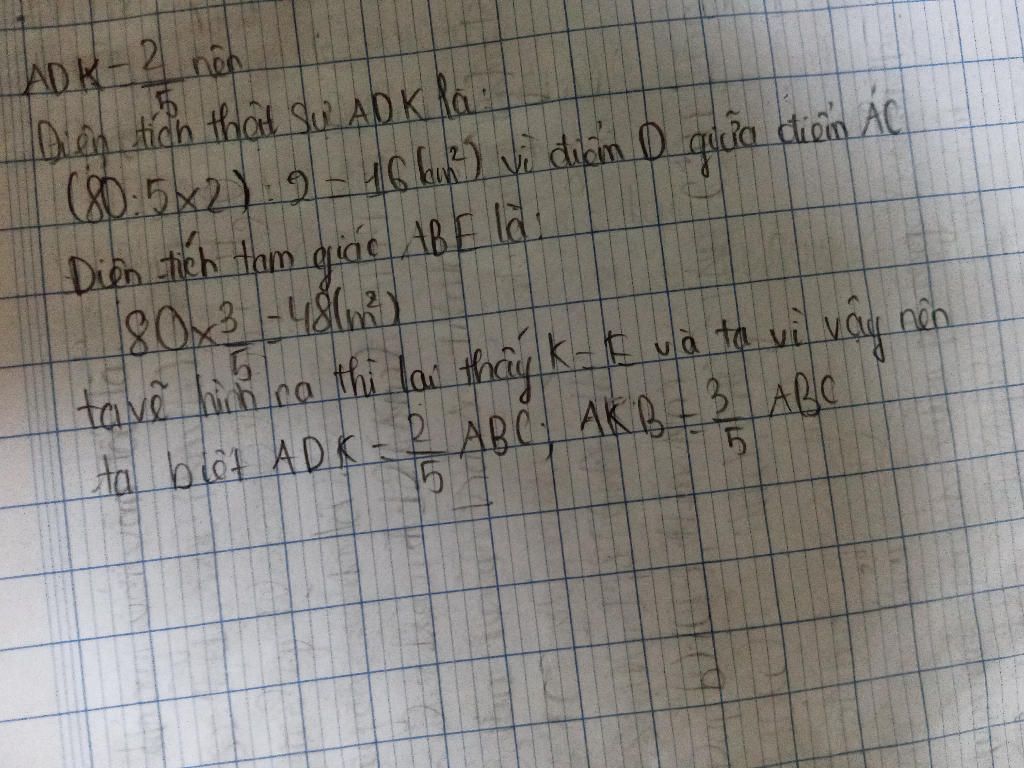 ADK = 2/5 nên
Diện tích thật sự ADK là:
(80 : 5 x 2) : 2 = 16 (cm²) vì điểm D giữa điểm AC
Diện tích tam giác ABE là:
80 x 3/5 = 48 (m²)
ta vẽ hình ra thì lai thấy K = E và ta vì vậy nên
ta biết ADK = 2/5 ABC; AKB = 3/5 ABC